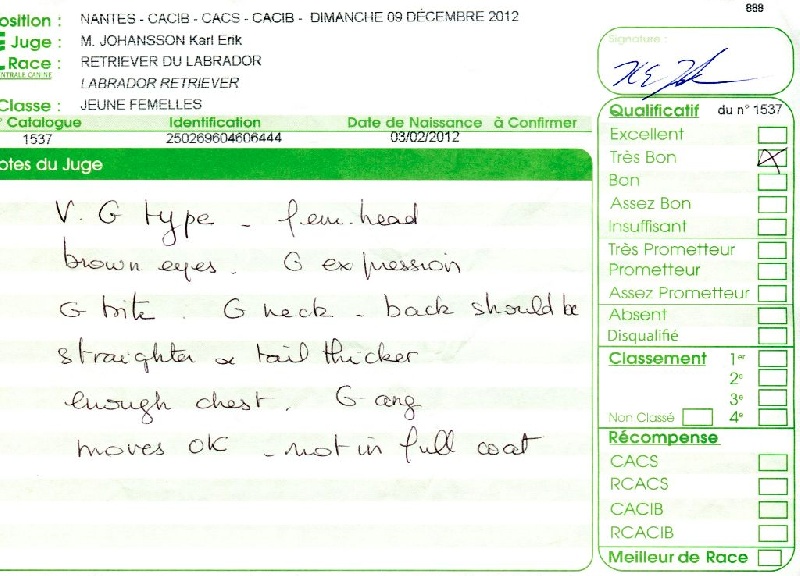 888
osition : NANTES - CACIB - CACS - CACIB - DIMANCHE 09 DÉCEMBRE 2012
Juge : M. JOHANSSON Karl Erik
Race : RETRIEVER DU LABRADOR
CENTRALE CANINE
LABRADOR RETRIEVER
Classe : JEUNE FEMELLES
° Catalogue Identification Date de Naissance à Confirmer
1537 250269604606444 03/02/2012
otes du Juge
V. G type - fem. head
brown eyes. G expression
G bite. G neck - back should be
straighter & tail thicker
enough chest. G ang
moves OK - not in full coat
Signature :
Qualificatif du n° 1537
Excellent
Très Bon
Bon
Assez Bon
Insuffisant
Très Prometteur
Prometteur
Assez Prometteur
Absent
Disqualifié
Classement 1er
2e
3e
Non Classé 4e
Récompense
CACS
RCACS
CACIB
RCACIB
Meilleur de Race